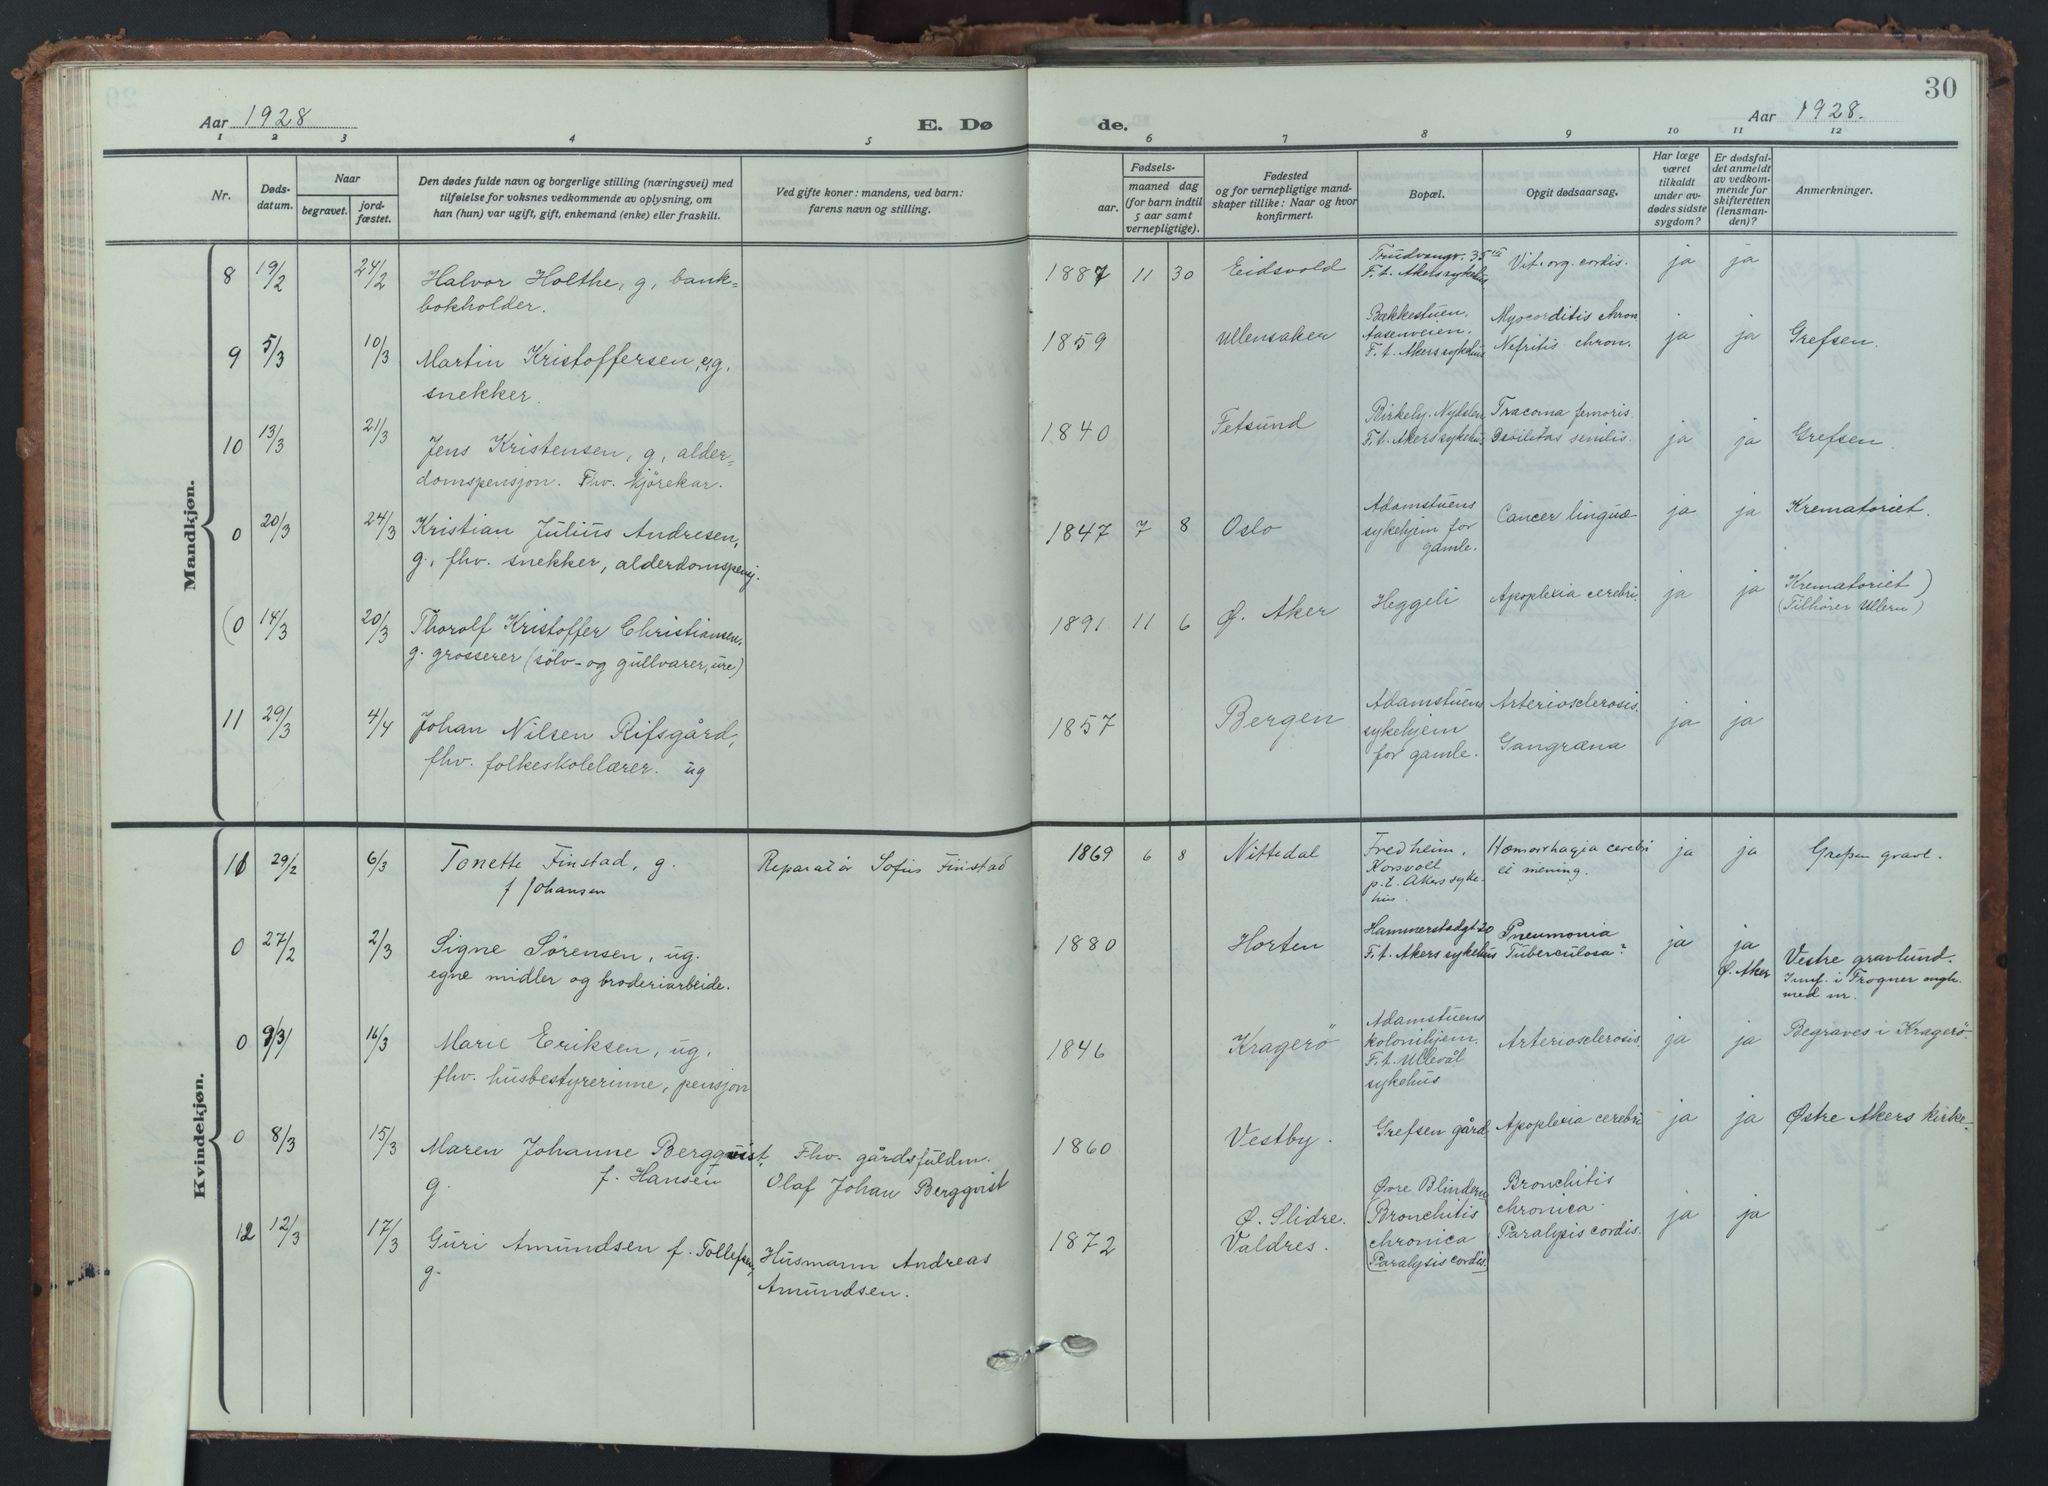 30
Aar 1928
E. Dø
de.
Aar 1928.
1 2 3 4 5 6 7 8 9 10 11 12
Nr.
Døds-
datum.
Naar
begravet.
jord-
fæstet.
Den dødes fulde navn og borgerlige stilling (næringsvei) med
tilføielse for voksnes vedkommende av oplysning, om
han (hun) var ugift, gift, enkemand (enke) eller fraskilt.
Ved gifte koner: mandens, ved barn:
farens navn og stilling.
Fødsels-
aar.
maaned dag
(for barn indtil
5 aar samt
vernepligtige).
Fødested
og for vernepligtige mand-
skaper tillike: Naar og hvor
konfirmert.
Bopæl.
Opgit dødsaarsag.
Har læge
været
tilkaldt
under av-
dødes sidste
sygdom?
Er dødsfal-
det anmeldt
av vedkom-
mende for
skifteretten
(lensman-
den)?
Anmerkninger.
Mandkjøn.
8 19/2 24/2 Halvor Holthe, g, bank-
bokholder.
1887 11 30 Eidsvold
Trudvangv. 35 III
F. t. Akers sykehus
Vit. org. cordis. ja ja
9 5/3 10/3 Martin Kristoffersen, g,
snekker.
1859 Ullensaker
Bakkestuen,
Aasenveien.
F. t. Akers sykehus
Myocorditis chron
Nefritis chron. ja ja Grefsen.
10 13/3 21/3 Jens Kristensen, g, alder-
domspensjon. Fhv. kjörekar.
1840 Fetsund
Birkely. Nydalen
F. t. Akers sykehus
Tracoma femoris.
Debilitas senilis. ja ja Grefsen.
0 20/3 24/3 Kristian Julius Andresen,
g, fhv. snekker, alderdomspensj.
1847 7 8 Oslo
Adamstuens
sykehjem for
gamle.
Cancer linguæ ja ja Krematoriet.
(0 14/3 20/3 Thorolf Kristoffer Christiansen,
g. grosserer (sölv- og gullvarer, ure)
1891 11 6 Ø. Aker Heggeli Apoplexia cerebri. ja ja Krematoriet )
(Tilhører Ullern)
11 29/3 4/4 Johan Nilsen Rifsgård,
fhv. folkeskolelærer. ug
1857 Bergen
Adamstuens
sykehjem
for gamle.
Arteriosclerosis.
Gangræna ja ja
Kvindekjøn.
11 29/2 6/3 Tonette Finstad, g.
f Johansen
Reparatör Sofus Finstad
1869 6 8 Nittedal
Fredheim,
Korsvoll
p.t. Akers syke-
hus.
Hæmorrhagia cerebri
et mening. ja ja Grefsen gravl.
0 27/2 2/3 Signe Sørensen, ug.
egne midler og broderiarbeide.
1880 Horten
Hammerstadgt 20
F. t. Akers sykehus
Pneumonia
Tuberculosa? ja ja
Ø. Aker
Vestre gravlund.
Innf. i Frogner
med nr.
0 9/3 16/3 Marie Eriksen, ug,
fhv. husbestyrerinne, pensjon
1846 Kragerö
Adamstuens
kolonihjem.
F. t. Ullevål
sykehus
Arteriosclerosis. ja ja Begraves i Kragerö.
0 8/3 15/3 Maren Johanne Bergqvist,
g. f. Hansen
Fhv. gårdsfuldm.
Olaf Johan Bergqvist
1860 Vestby. Grefsen gård Apoplexia cerebri ja ja Østre Akers kirke.
12 12/3 17/3 Guri Amundsen f. Tollefsen,
g.
Husmann Andreas
Amundsen.
1872 Ø. Slidre.
Valdres.
Øvre Blindern
(Bronchitis
chronica
Paralysis cordis)
Bronchitis
chronica.
Paralysis cordis. ja ja